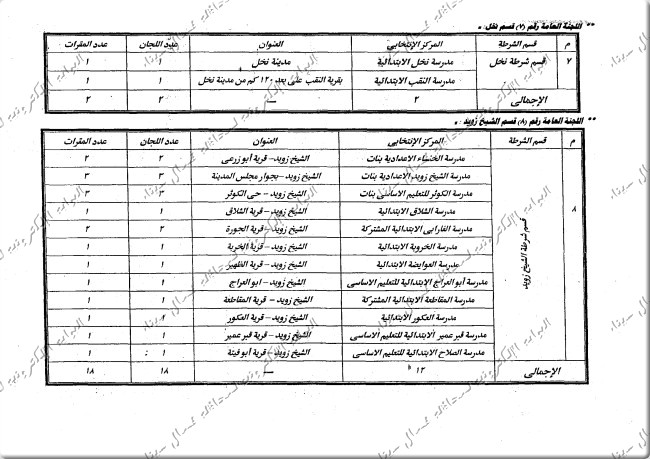 ** اللجنة العامة رقم (٧) قسم نخل : *
م قسم الشرطة المركز الإنتخابى العنوان عدد اللجان عدد المقرات
٧ قسم شرطة نخل مدرسة نخل الابتدائية مدينة نخل ١ ١
مدرسة النقب الابتدائية بقرية النقب على بعد ١٢٠ كم من مدينة نخل ١ ١
الإجمالى ٢ — ٢ ٢
** اللجنة العامة رقم (٨) قسم الشيخ زويد : *
م قسم الشرطة المركز الإنتخابى العنوان عدد اللجان عدد المقرات
٨ قسم شرطة الشيخ زويد
مدرسة الخنساء الاعدادية بنات الشيخ زويد – قرية أبوزرعى ٢ ٢
مدرسة الشيخ زويد الاعدادية بنات الشيخ زويد – بجوار مجلس المدينة ٣ ٣
مدرسة الكوثر للتعليم الاساسى بنات الشيخ زويد – حى الكوثر ٣ ٣
مدرسة الشلاق الابتدائية الشيخ زويد – قرية الشلاق ١ ١
مدرسة الفارابى الابتدائية المشتركة الشيخ زويد – قرية الجورة ٢ ٢
مدرسة الخروبة الابتدائية الشيخ زويد – قرية الخربة ١ ١
مدرسة العوايضة الابتدائية الشيخ زويد – قرية الظهير ١ ١
مدرسة أبو العراج الابتدائية للتعليم الاساسى الشيخ زويد – ابو العراج ١ ١
مدرسة المقاطعة الابتدائية المشتركة الشيخ زويد – قرية المقاطعة ١ ١
مدرسة العكور الابتدائية الشيخ زويد – قرية العكور ١ ١
مدرسة قبر عمير الابتدائية للتعليم الاساسى الشيخ زويد – قرية قبر عمير ١ ١
مدرسة الصلاح الابتدائية للتعليم الاساسى الشيخ زويد – قرية أبو فيتة ١ ١
الإجمالى ١٢ — ١٨ ١٨